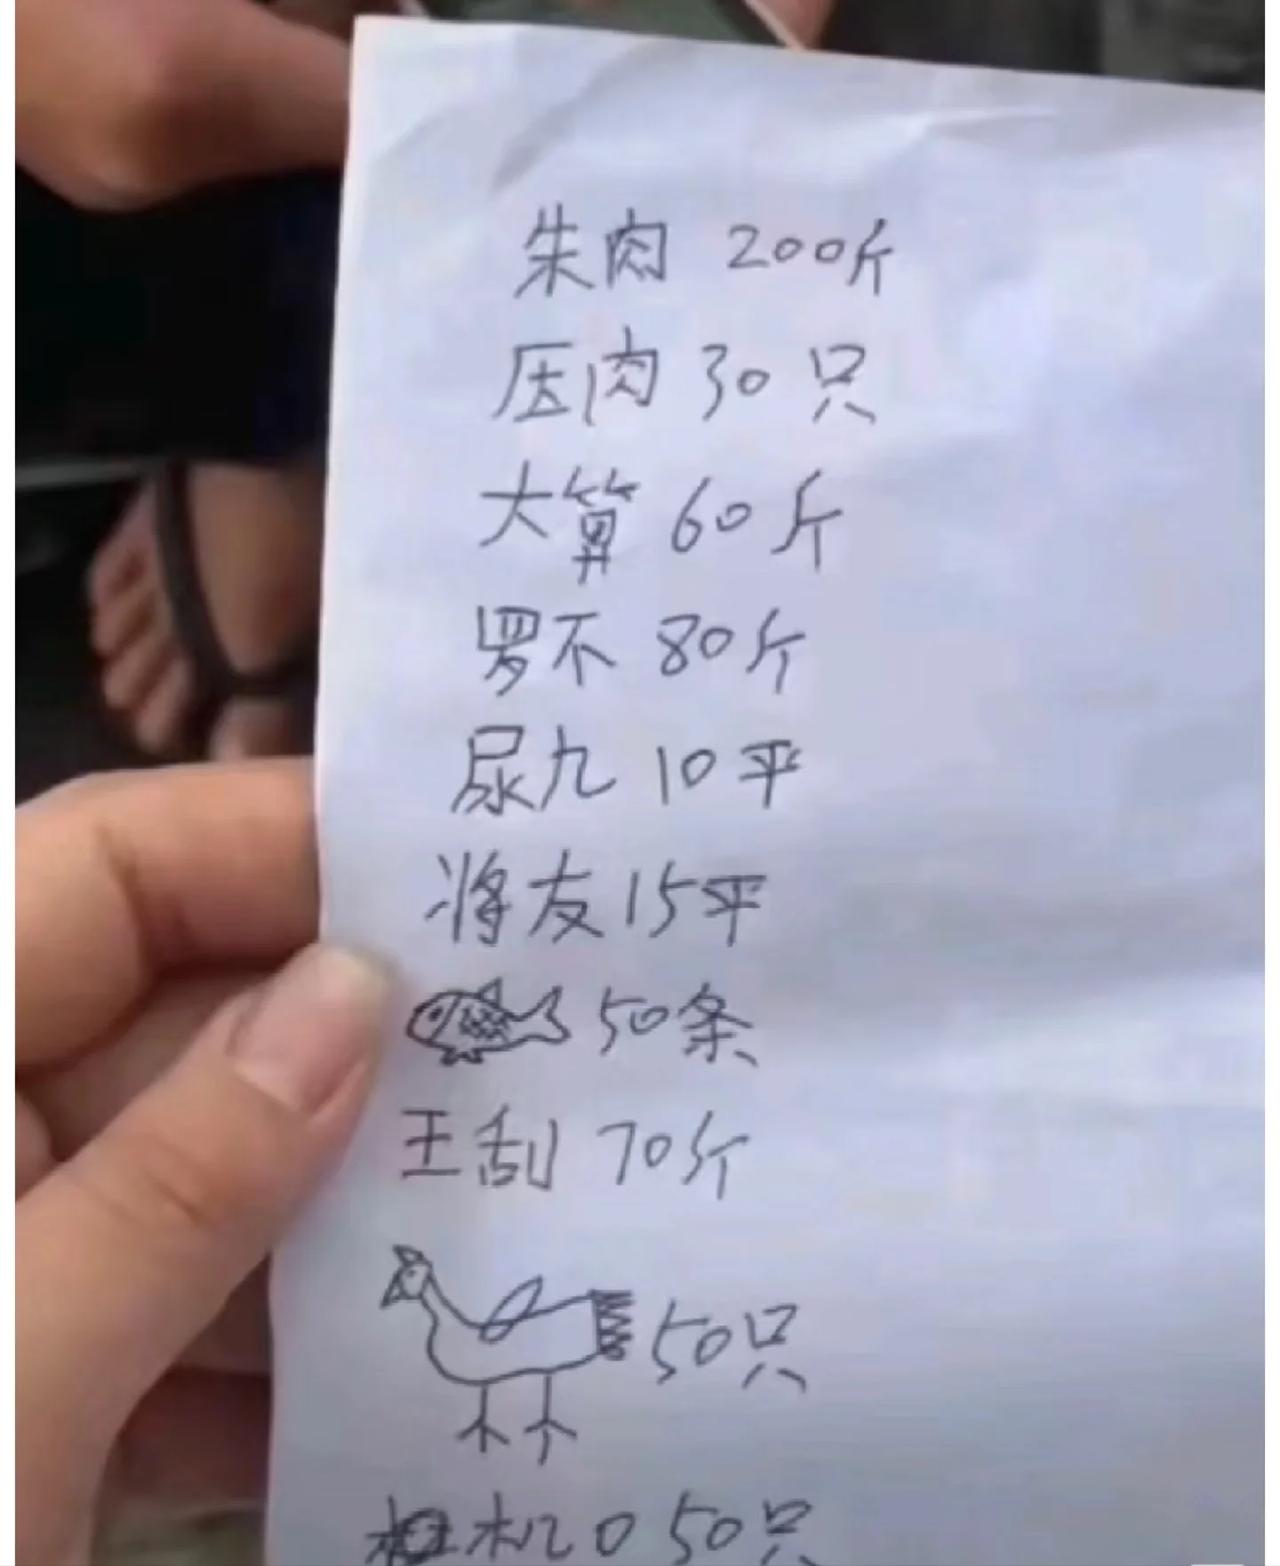 朱肉 200斤
压肉 30只
大算 60斤
罗不 80斤
尿九 10平
将友 15平
50条
王刮 70斤
50只
机 50只